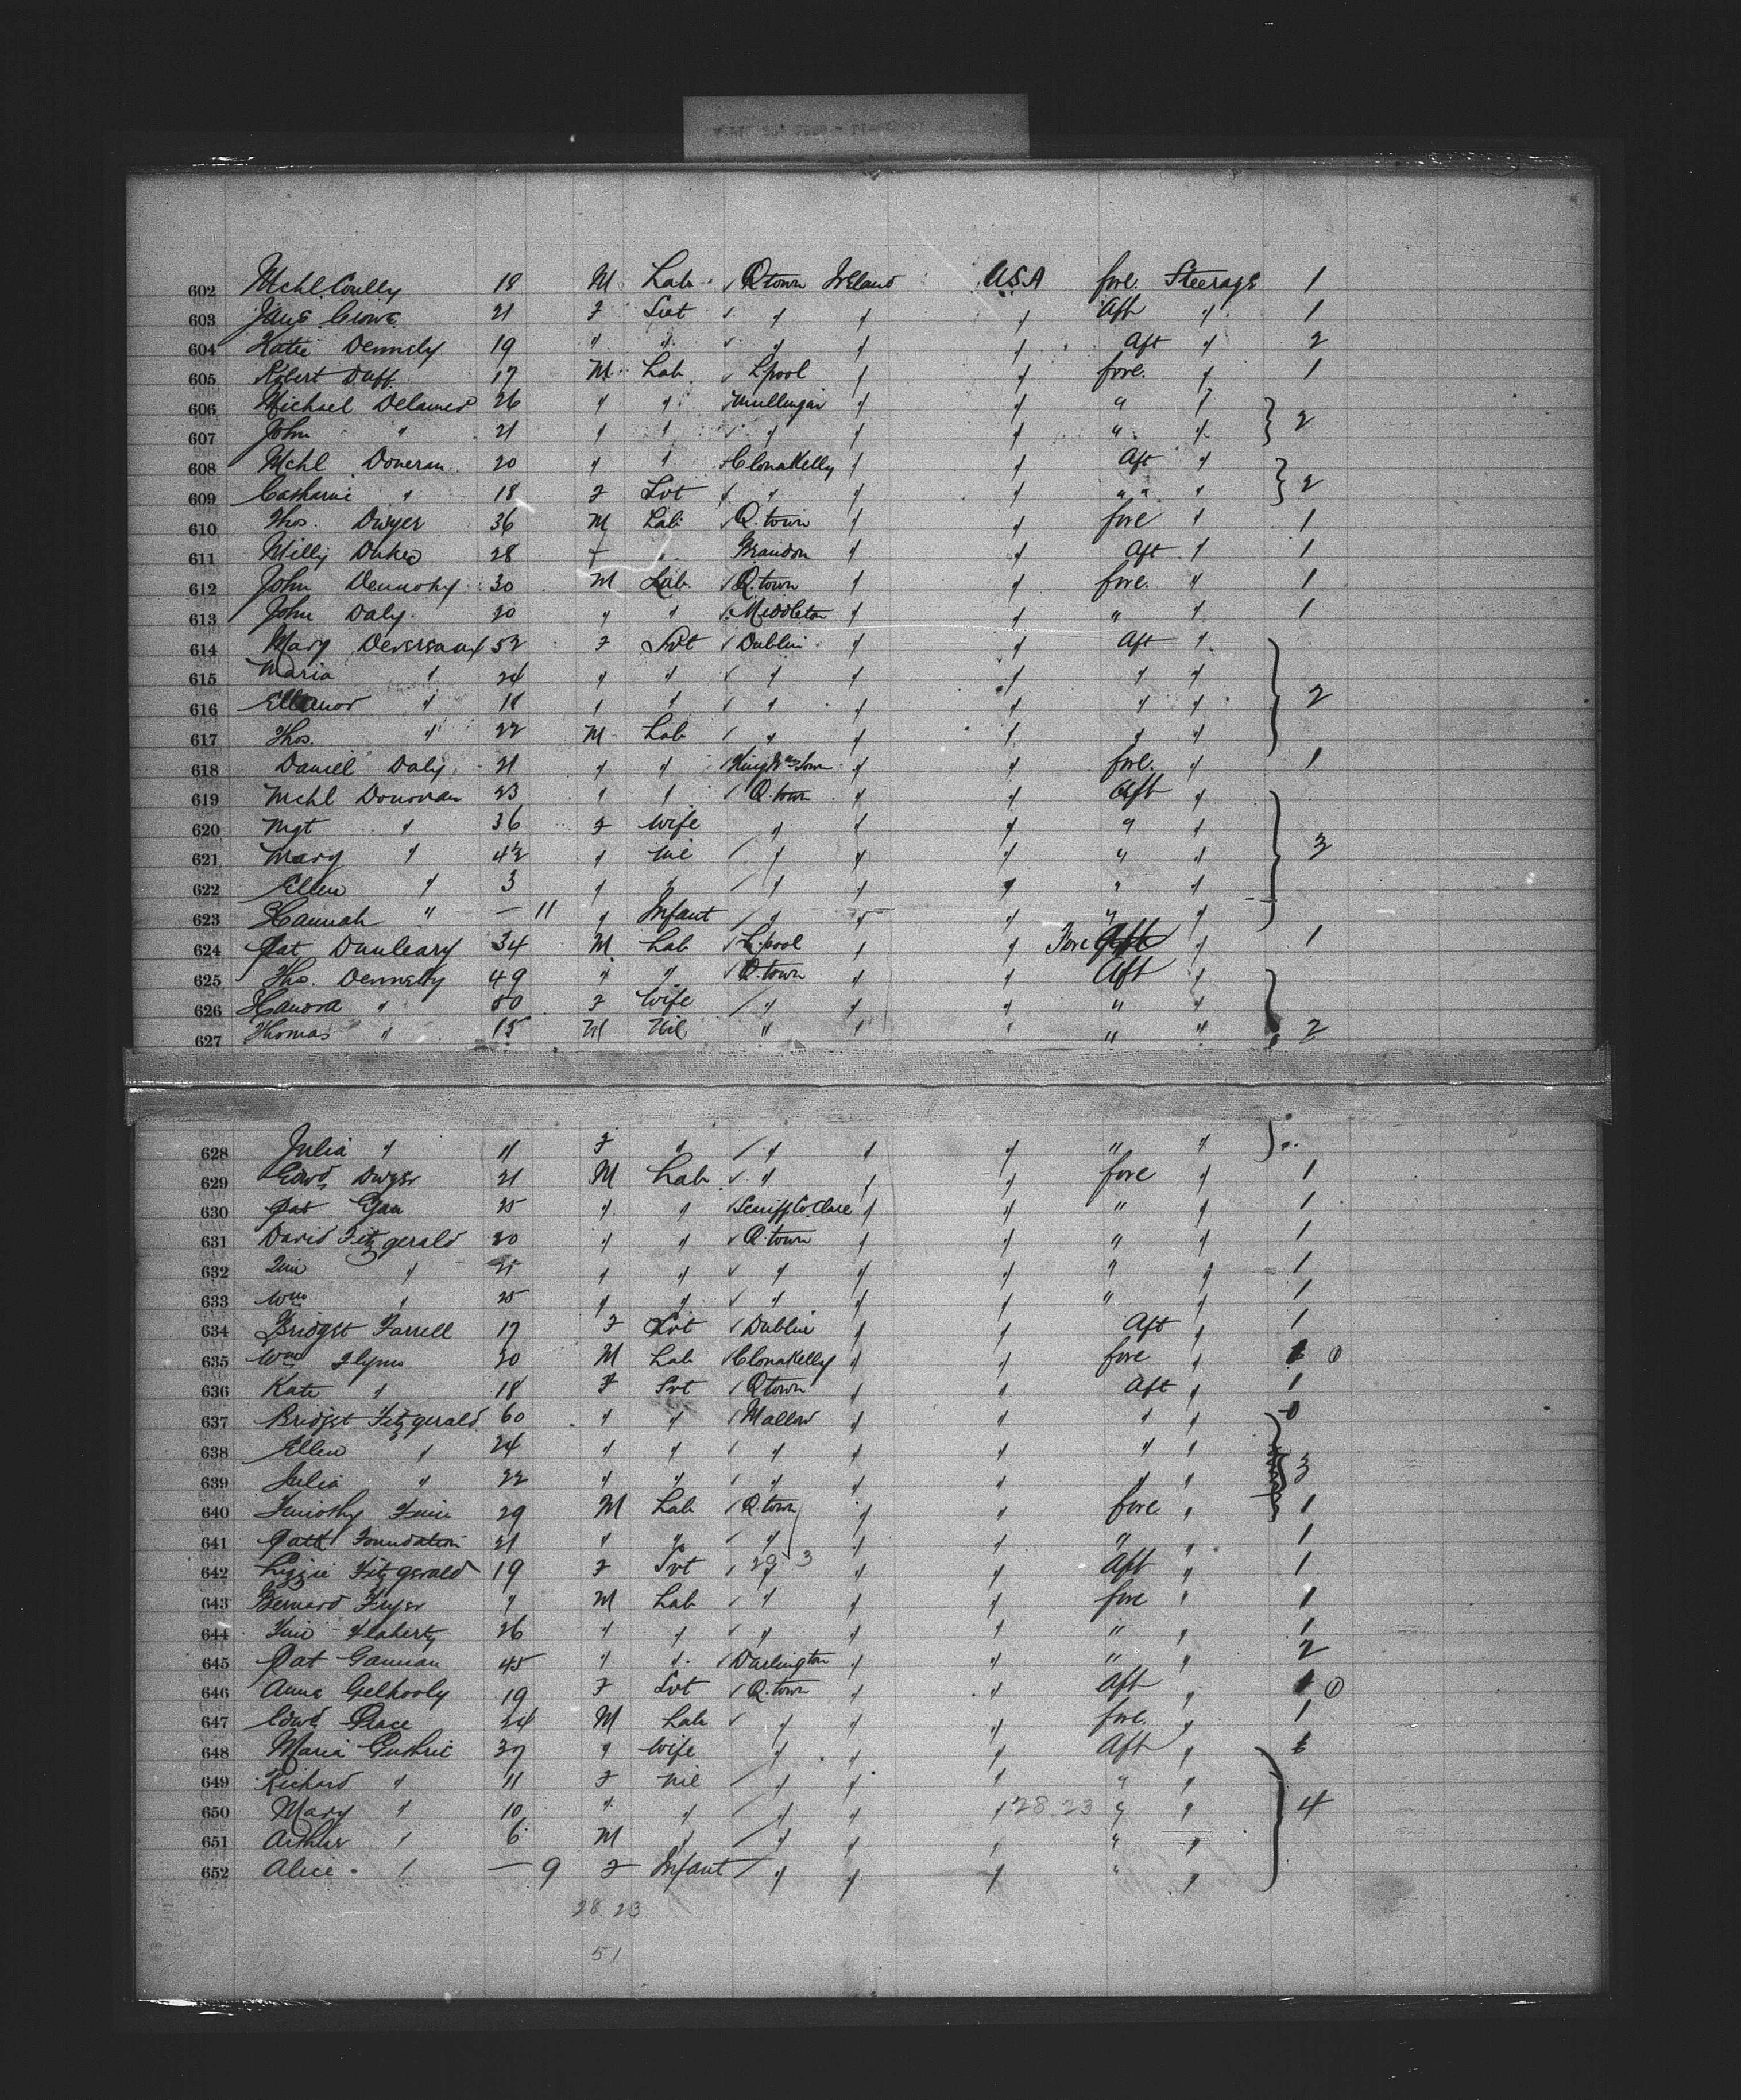 602 Mchl. Conlly 18 M Lab ✓ Qtown Ireland USA fore. Steerage 1
603 Jane Crowe 21 F Svt ✓ " " " Aft " 1
604 Katie Dennehy 19 " " ✓ " " " Aft " 2
605 Robert Duff 17 M Lab ✓ Lpool " " fore. " 1
606 Michael Delamer 26 " " ✓ Mullingar " " " "
607 John " 21 " " ✓ " " " " " } 2
608 Mchl Doneran 20 " " Clonakelly " " Aft "
609 Catharine " 18 F Svt ✓ " " " " " " } 2
610 Thos. Dwyer 36 M Lab ✓ Q.town " " fore " 1
611 Milly Dukes 28 F " Brandon " " Aft " 1
612 John Dennohy 30 M Lab ✓ Q.town " " fore. " 1
613 John Daly. 20 " " ✓ Middleton " " " " 1
614 Mary Devereaux 52 F Svt ✓ Dublin " " Aft "
615 Maria " 24 " " ✓ " " " " "
616 Elleanor " 18 " " ✓ " " " " " } 2
617 Thos. " 22 M Lab ✓ " " " " "
618 Daniel Daly 21 " " ✓ KingWmstown " " fore. " 1
619 Mchl Donovan 23 " " ✓ Q.town " " Aft "
620 Mgt " 36 F Wife " " " " "
621 Mary " 4½ " Nil ✓ " " " " " } 3
622 Ellen " 3 " " ✓ " " " " "
623 Hannah " — 11 " Infant ✓ " " " " "
624 Pat Dunleary 34 M Lab ✓ L.pool " " Fore Aft " 1
625 Thos. Dennehy 49 " " ✓ Q.town " " Aft "
626 Hanora " 50 F Wife ✓ " " " " "
627 Thomas " 15 M Nil " " " " " } 2
628 Julia " 11 F " ✓ " " " " "
629 Edwd Dwyer 21 M Lab ✓ " " " fore " 1
630 Pat Egan 25 " " ✓ Scariff Co. Clare " " " " 1
631 David Fitzgerald 20 " " ✓ Q.town " " " " 1
632 " 21 " " ✓ " " " " " 1
633 Wm " 25 " " ✓ " " " " " 1
634 Bridget Farrell 17 F Svt ✓ Dublin " " Aft " 1
635 Wm Flynn 20 M Lab ✓ Clonakelly " " fore " 1
636 Kate " 18 F Svt ✓ Qtown " " Aft " 1
637 Bridget Fitzgerald 60 " " ✓ Mallow " " " "
638 Ellen " 24 " " ✓ " " " " "
639 Julia " 22 " " ✓ " " " " " } 3
640 Timothy 29 M Lab ✓ Q.town " " fore. " 1
641 Patt Foundation 21 " " ✓ " " " " " 1
642 Lizzie Fitzgerald 19 F Svt ✓ " 29 3 " " Aft " 1
643 Bernard Fryer " M Lab ✓ " " " fore " 1
644 Tim Flaherty 26 " " ✓ " " " " " 1
645 Pat Gannan 45 " " ✓ Darlington " " " " 2
646 Anne Gelhooly 19 F Svt ✓ Q.town " " Aft " 1
647 Edwd Grace 24 M Lab ✓ " " " fore. " 1
648 Maria Guthrie 37 " Wife " " " Aft "
649 Richard " 11 F Nil ✓ " " " " "
650 Mary " 10 " " ✓ " " " 28.23 " " } 4
651 Arthur " 6 M " ✓ " " " " "
652 Alice " — 9 F Infant ✓ " " " " "
28 23
51